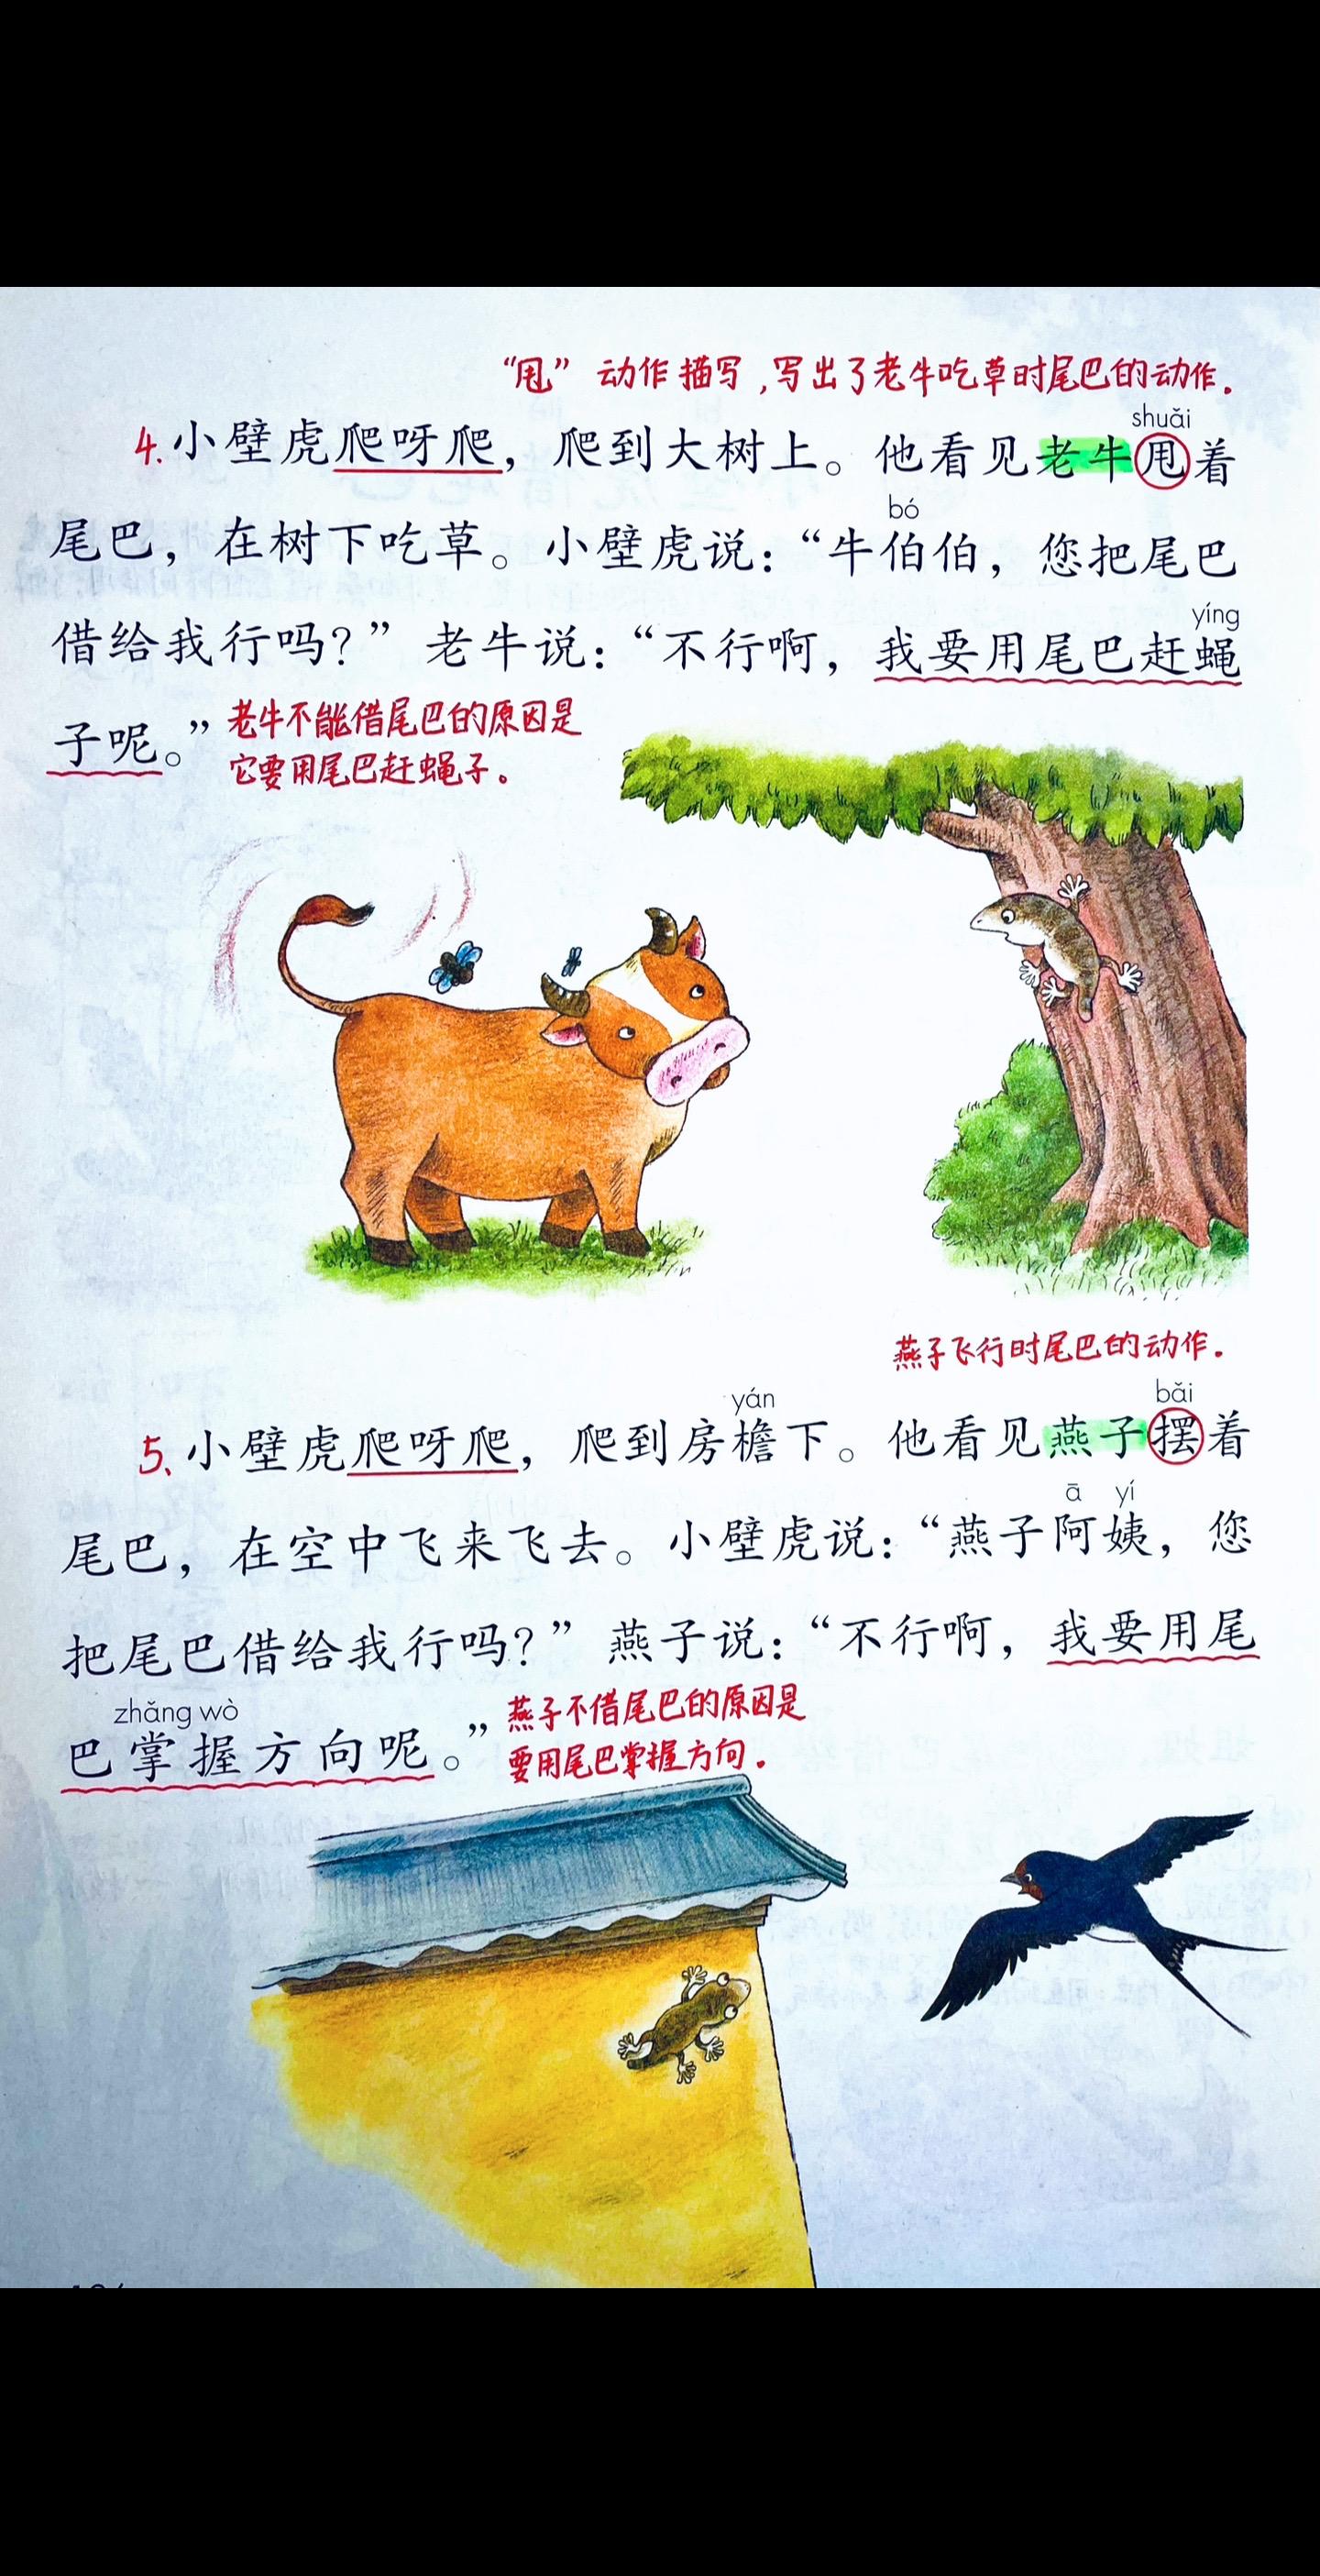 “甩”动作描写,写出了老牛吃草时尾巴的动作.
shuǎi
4.小壁虎爬呀爬，爬到大树上。他看见老牛甩着
bó
尾巴，在树下吃草。小壁虎说：“牛伯伯，您把尾巴
yíng
借给我行吗？”老牛说：“不行啊，我要用尾巴赶蝇
子呢。”
老牛不能借尾巴的原因是
它要用尾巴赶蝇子。
燕子飞行时尾巴的动作.
yán bǎi
5、小壁虎爬呀爬，爬到房檐下。他看见燕子摆着
ā yí
尾巴，在空中飞来飞去。小壁虎说：“燕子阿姨，您
把尾巴借给我行吗？”燕子说：“不行啊，我要用尾
zhǎng wò
巴掌握方向呢。”
燕子不借尾巴的原因是
要用尾巴掌握方向.